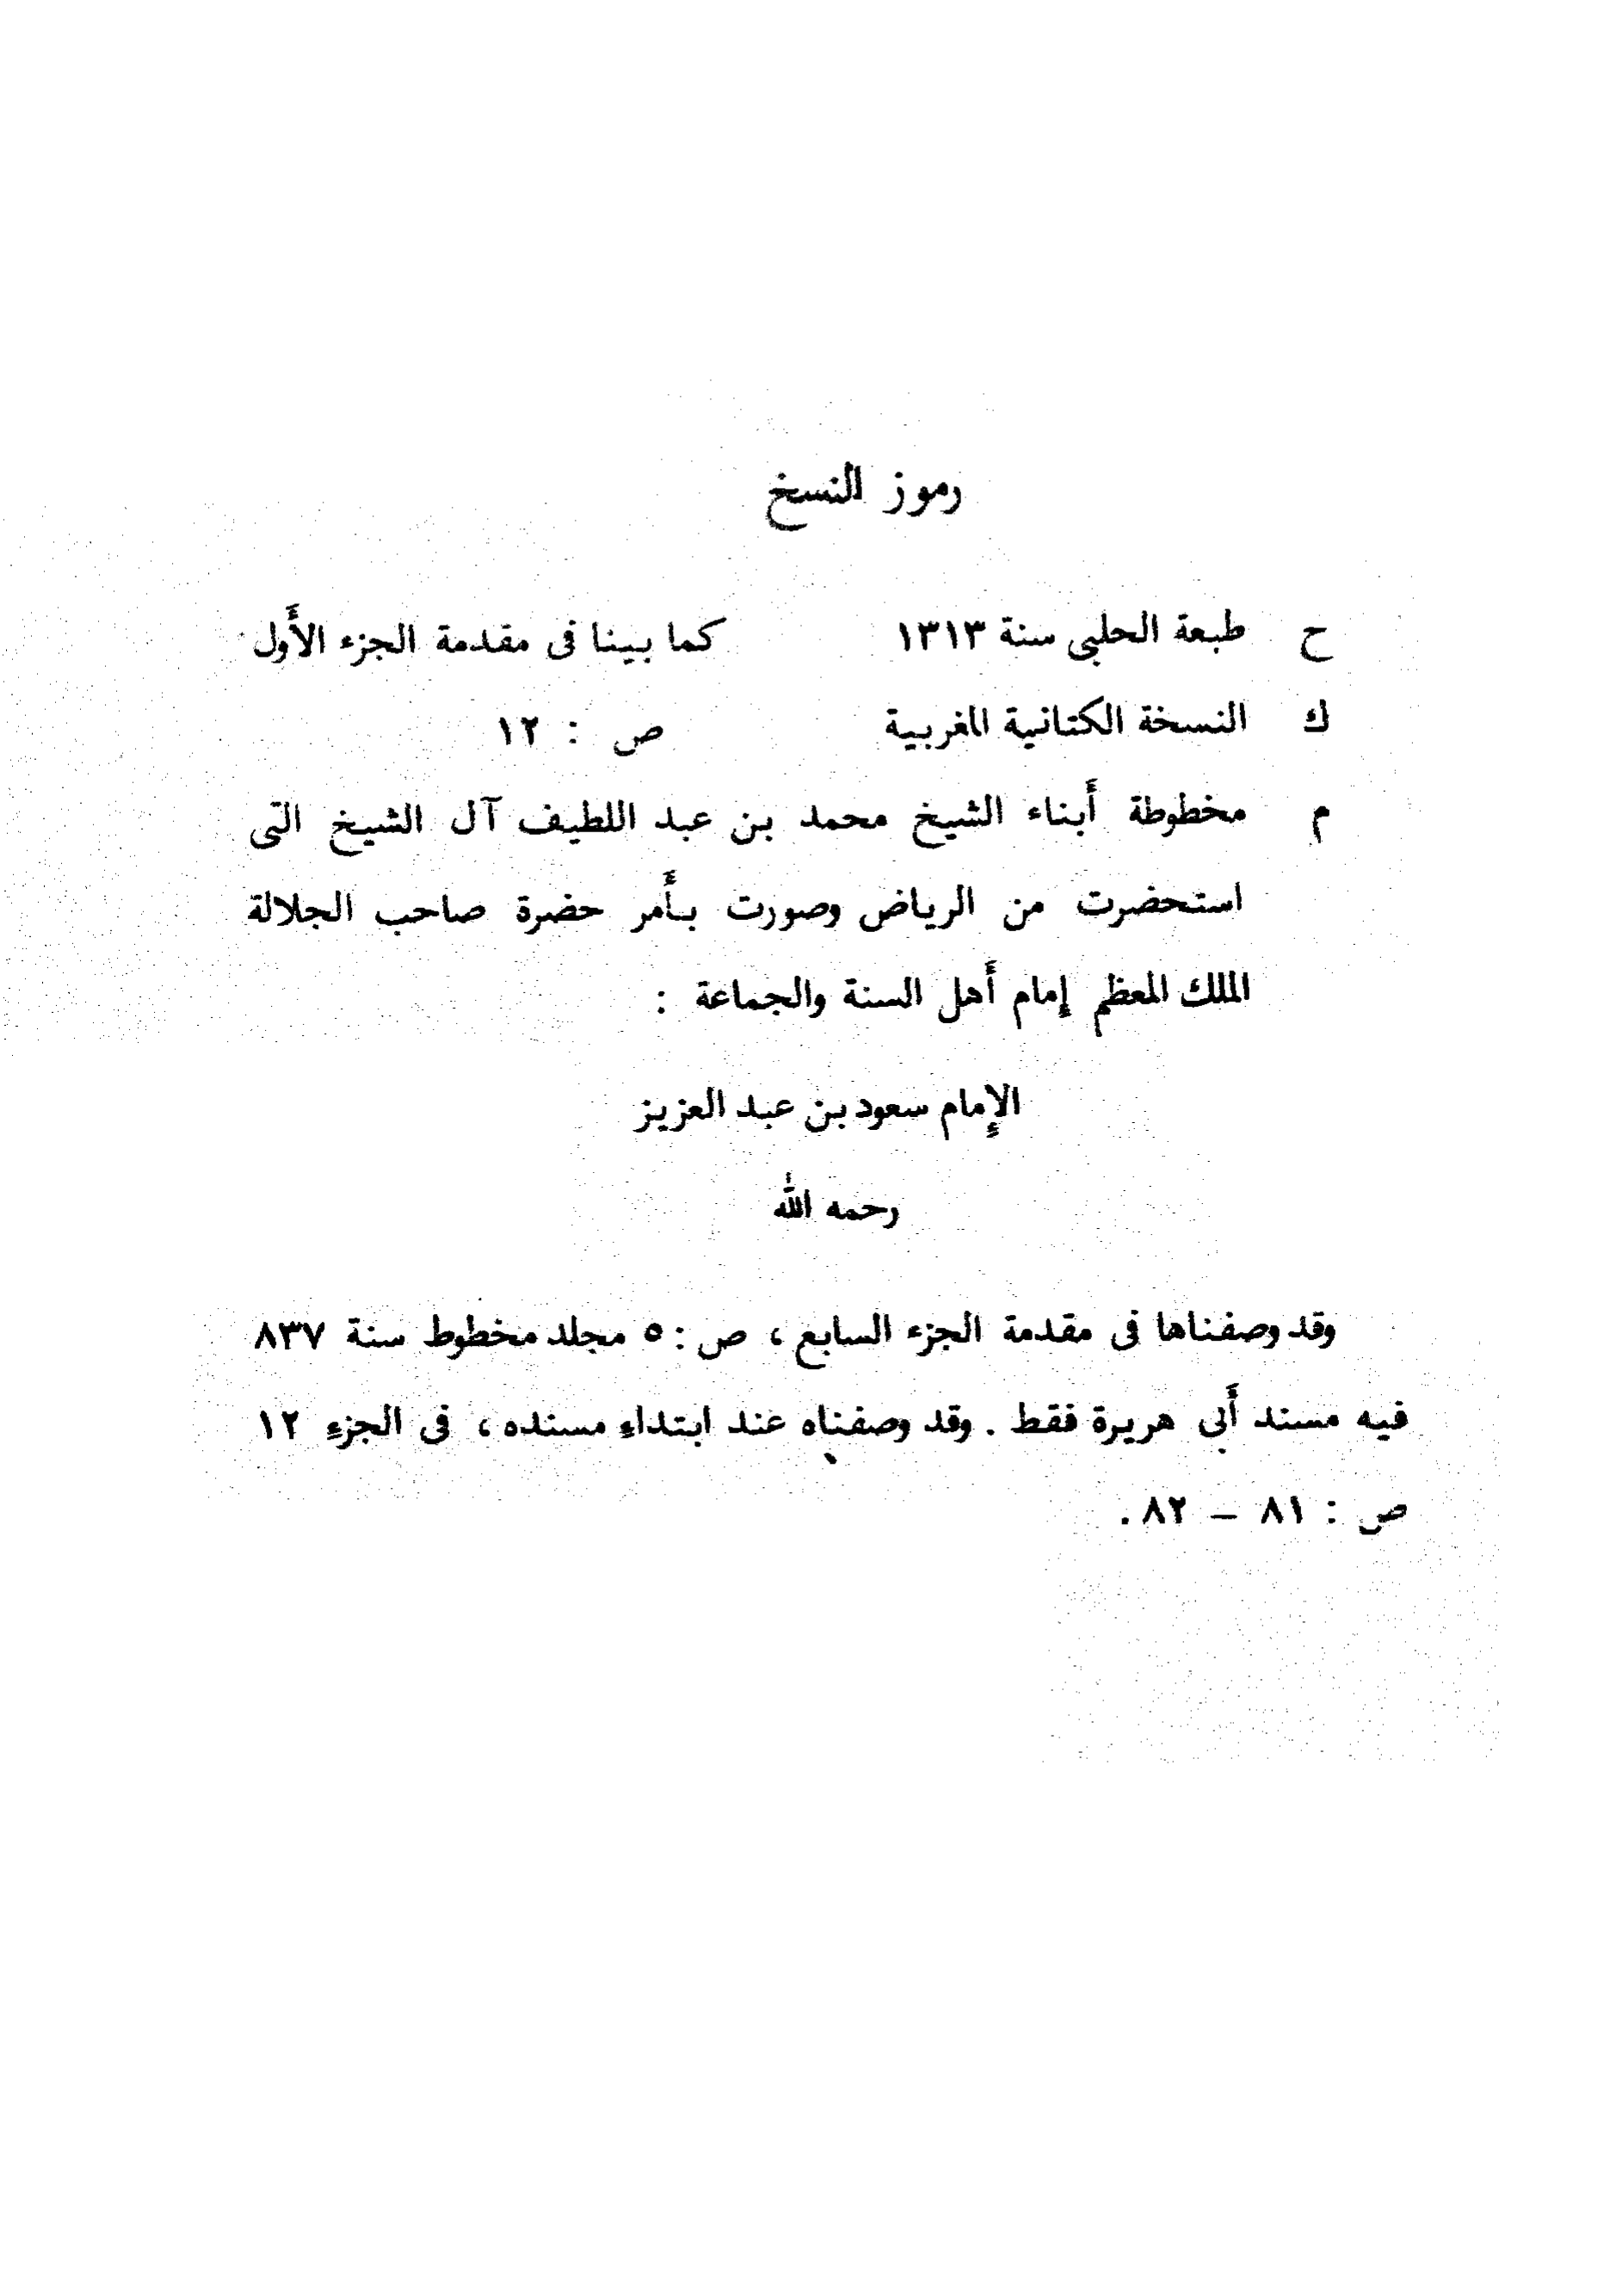 رموز النسخ
ح طبعة الحلبى سنة ١٣١٣ كما بينا فى مقدمة الجزء الأَول
ك النسخة الكتانية المغربية ص : ١٢
م مخطوطة أَبناء الشيخ محمد بن عبد اللطيف آل الشيخ التى
استحضرت من الرياض وصورت بأَمر حضرة صاحب الجلالة
الملك المعظم إمام أَهل السنة والجماعة :
الإِمام سعود بن عبد العزيز
رحمه الله
وقد وصفناها فى مقدمة الجزء السابع ، ص : ٥ مجلد مخطوط سنة ٨٣٧
فيه مسند أَبى هريرة فقط . وقد وصفناه عند ابتداءِ مسنده ، فى الجزءِ ١٢
ص : ٨١ – ٨٢ .